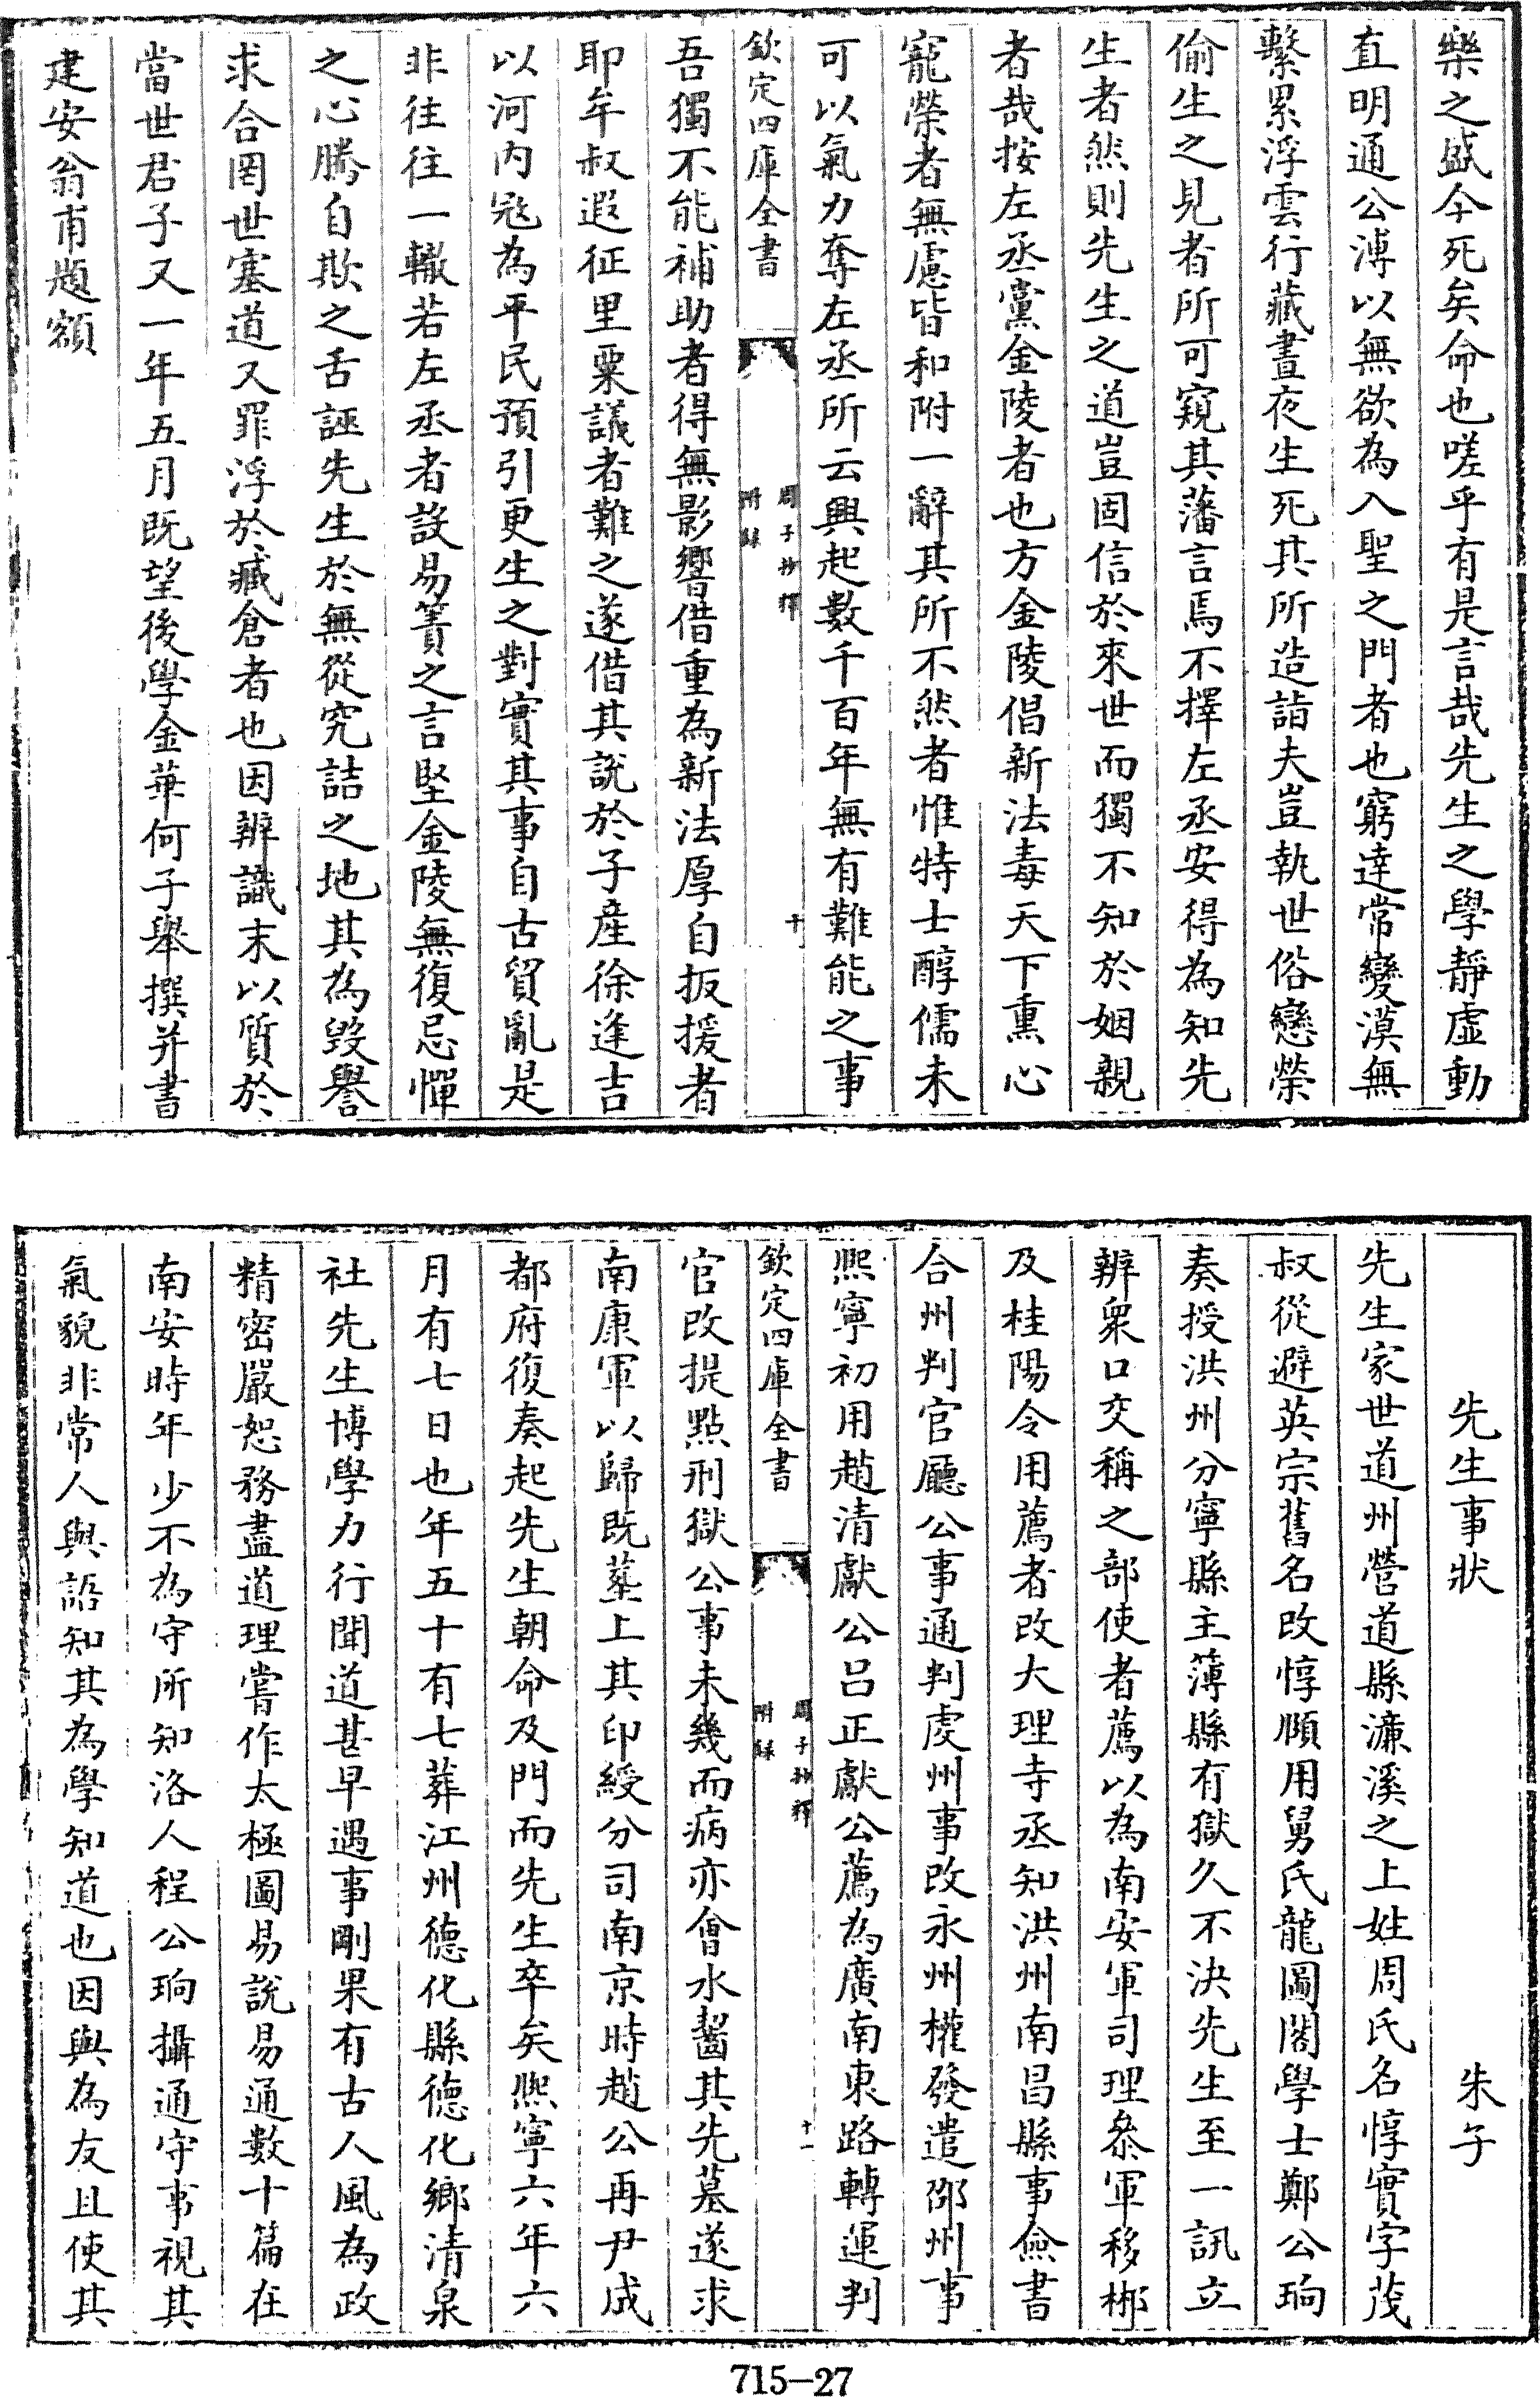 樂之盛今死矣命也嗟乎有是言哉先生之學靜虛動
直明通公溥以無欲為入聖之門者也窮達常變漠無
繫累浮雲行藏晝夜生死其所造詣夫豈執世俗戀榮
偷生之見者所可窺其藩言焉不擇左丞安得為知先
生者然則先生之道豈固信於來世而獨不知於姻親
者哉按左丞黨金陵者也方金陵倡新法毒天下熏心
寵榮者無慮皆和附一辭其所不然者惟特士醇儒未
可以氣力奪左丞所云興起數千百年無有難能之事
欽定四庫全書
周子抄釋
附録
十
吾獨不能補助者得無影響借重為新法厚自扳援者
耶牟叔遐征里粟議者難之遂借其說於子產徐逢吉
以河內冦為平民預引更生之對實其事自古貿亂是
非往往一轍若左丞者設易簀之言堅金陵無復忌憚
之心騰自欺之舌誣先生於無從究詰之地其為毀譽
求合罔世塞道又罪浮於臧倉者也因辨識末以質於
當世君子又一年五月既望後學金華何子舉撰并書
建安翁甫題額
先生事狀
朱子
先生家世道州營道縣濂溪之上姓周氏名惇實字茂
叔從避英宗舊名改惇頤用舅氏龍圖閣學士鄭公珦
奏授洪州分寧縣主薄縣有獄久不決先生至一訊立
辨衆口交稱之部使者薦以為南安軍司理叅軍移郴
及桂陽令用薦者改大理寺丞知洪州南昌縣事僉書
合州判官廳公事通判虔州事改永州權發遣邵州事
熈寧初用趙清獻公呂正獻公薦為廣南東路轉運判
欽定四庫全書
周子抄釋
附録
十一
官改提點刑獄公事未幾而病亦會水齧其先墓遂求
南康軍以歸既塟上其印綬分司南京時趙公再尹成
都府復奏起先生朝命及門而先生卒矣熈寧六年六
月有七日也年五十有七葬江州德化縣德化鄉清泉
社先生博學力行聞道甚早遇事剛果有古人風為政
精密嚴恕務盡道理嘗作太極圖易說易通數十篇在
南安時年少不為守所知洛人程公珦攝通守事視其
氣貌非常人與語知其為學知道也因與為友且使其
715-27